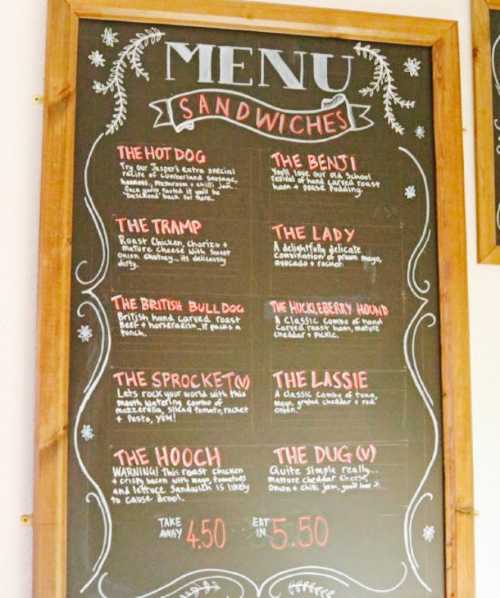 MENU
SANDWICHES
THE HOT DOG
Try our Jasper's extra special
recipe of Cumberland sausage,
mushroom + chilli jam.
Once you've tasted it you'll be
back for more.
THE BENJI
You'll love our old school
revival of hand carved roast
ham + pease pudding.
THE TRAMP
Roast Chicken, chorizo +
mature cheese with sweet
onion chutney... its deliciously
dirty.
THE LADY
A delightfully delicate
combination of prawn mayo,
avocado + rocket.
THE BRITISH BULLDOG
British hand carved roast
Beef + horseradish... it packs a
punch.
THE HUCKLEBERRY HOUND
A Classic Combo of hand
carved roast ham, mature
cheddar + pickle.
THE SPROCKET (V)
Lets rock your world with this
mouth watering combo of
mozzarella, sliced tomato, rocket
+ Pesto, YUM!
THE LASSIE
A classic combo of tuna,
mayo, grated cheddar + red
onion.
THE HOOCH
WARNING! This roast chicken
+ crispy bacon with mayo, tomatoes
and lettuce sandwich is likely
to cause drool.
THE DUG (V)
Quite simple really...
mature cheddar cheese,
onion + chilli jam, you'll love it.
TAKE AWAY 4.50
EAT IN 5.50